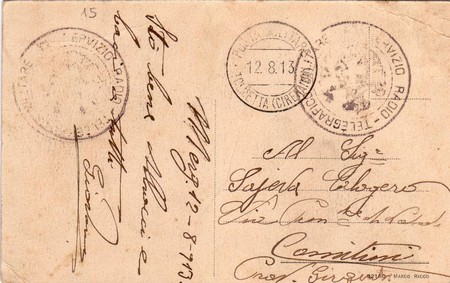 15
Merg 12-8-913
Sto bene Abbracci e
baci a tutti
SERVIZIO RADIO-TELE
POSTA MILITARE
12.8.13
(CIRENAICA)
SERVIZIO RADIO-TELEGRAFICO
Al Sig.
Sajeva Calogero
Via
Comitini
Prov. Girgenti
MARCO RICCO